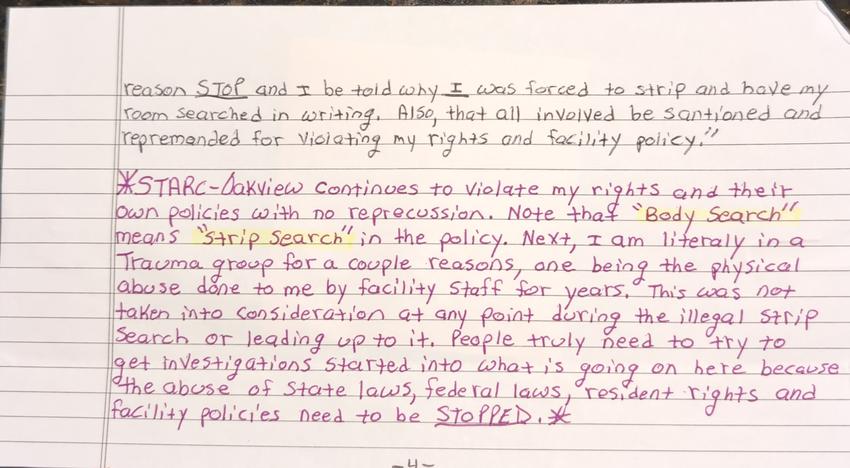 reason STOP and I be told why I was forced to strip and have my
room searched in writing. Also, that all involved be santioned and
repremanded for violating my rights and facility policy."
*STARC-Oakview continues to violate my rights and their
own policies with no reprecussion. Note that "Body Search"
means "Strip Search" in the policy. Next, I am literaly in a
Trauma group for a couple reasons, one being the physical
abuse done to me by facility staff for years. This was not
taken into consideration at any point during the illegal strip
search or leading up to it. People truly need to try to
get investigations started into what is going on here because
the abuse of state laws, federal laws, resident rights and
facility policies need to be STOPPED.*
-4-